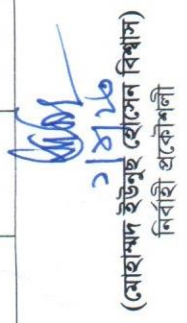 (মোহাম্মদ ইউনুছ হোসেন বিশ্বাস)
নির্বাহী প্রকৌশলী